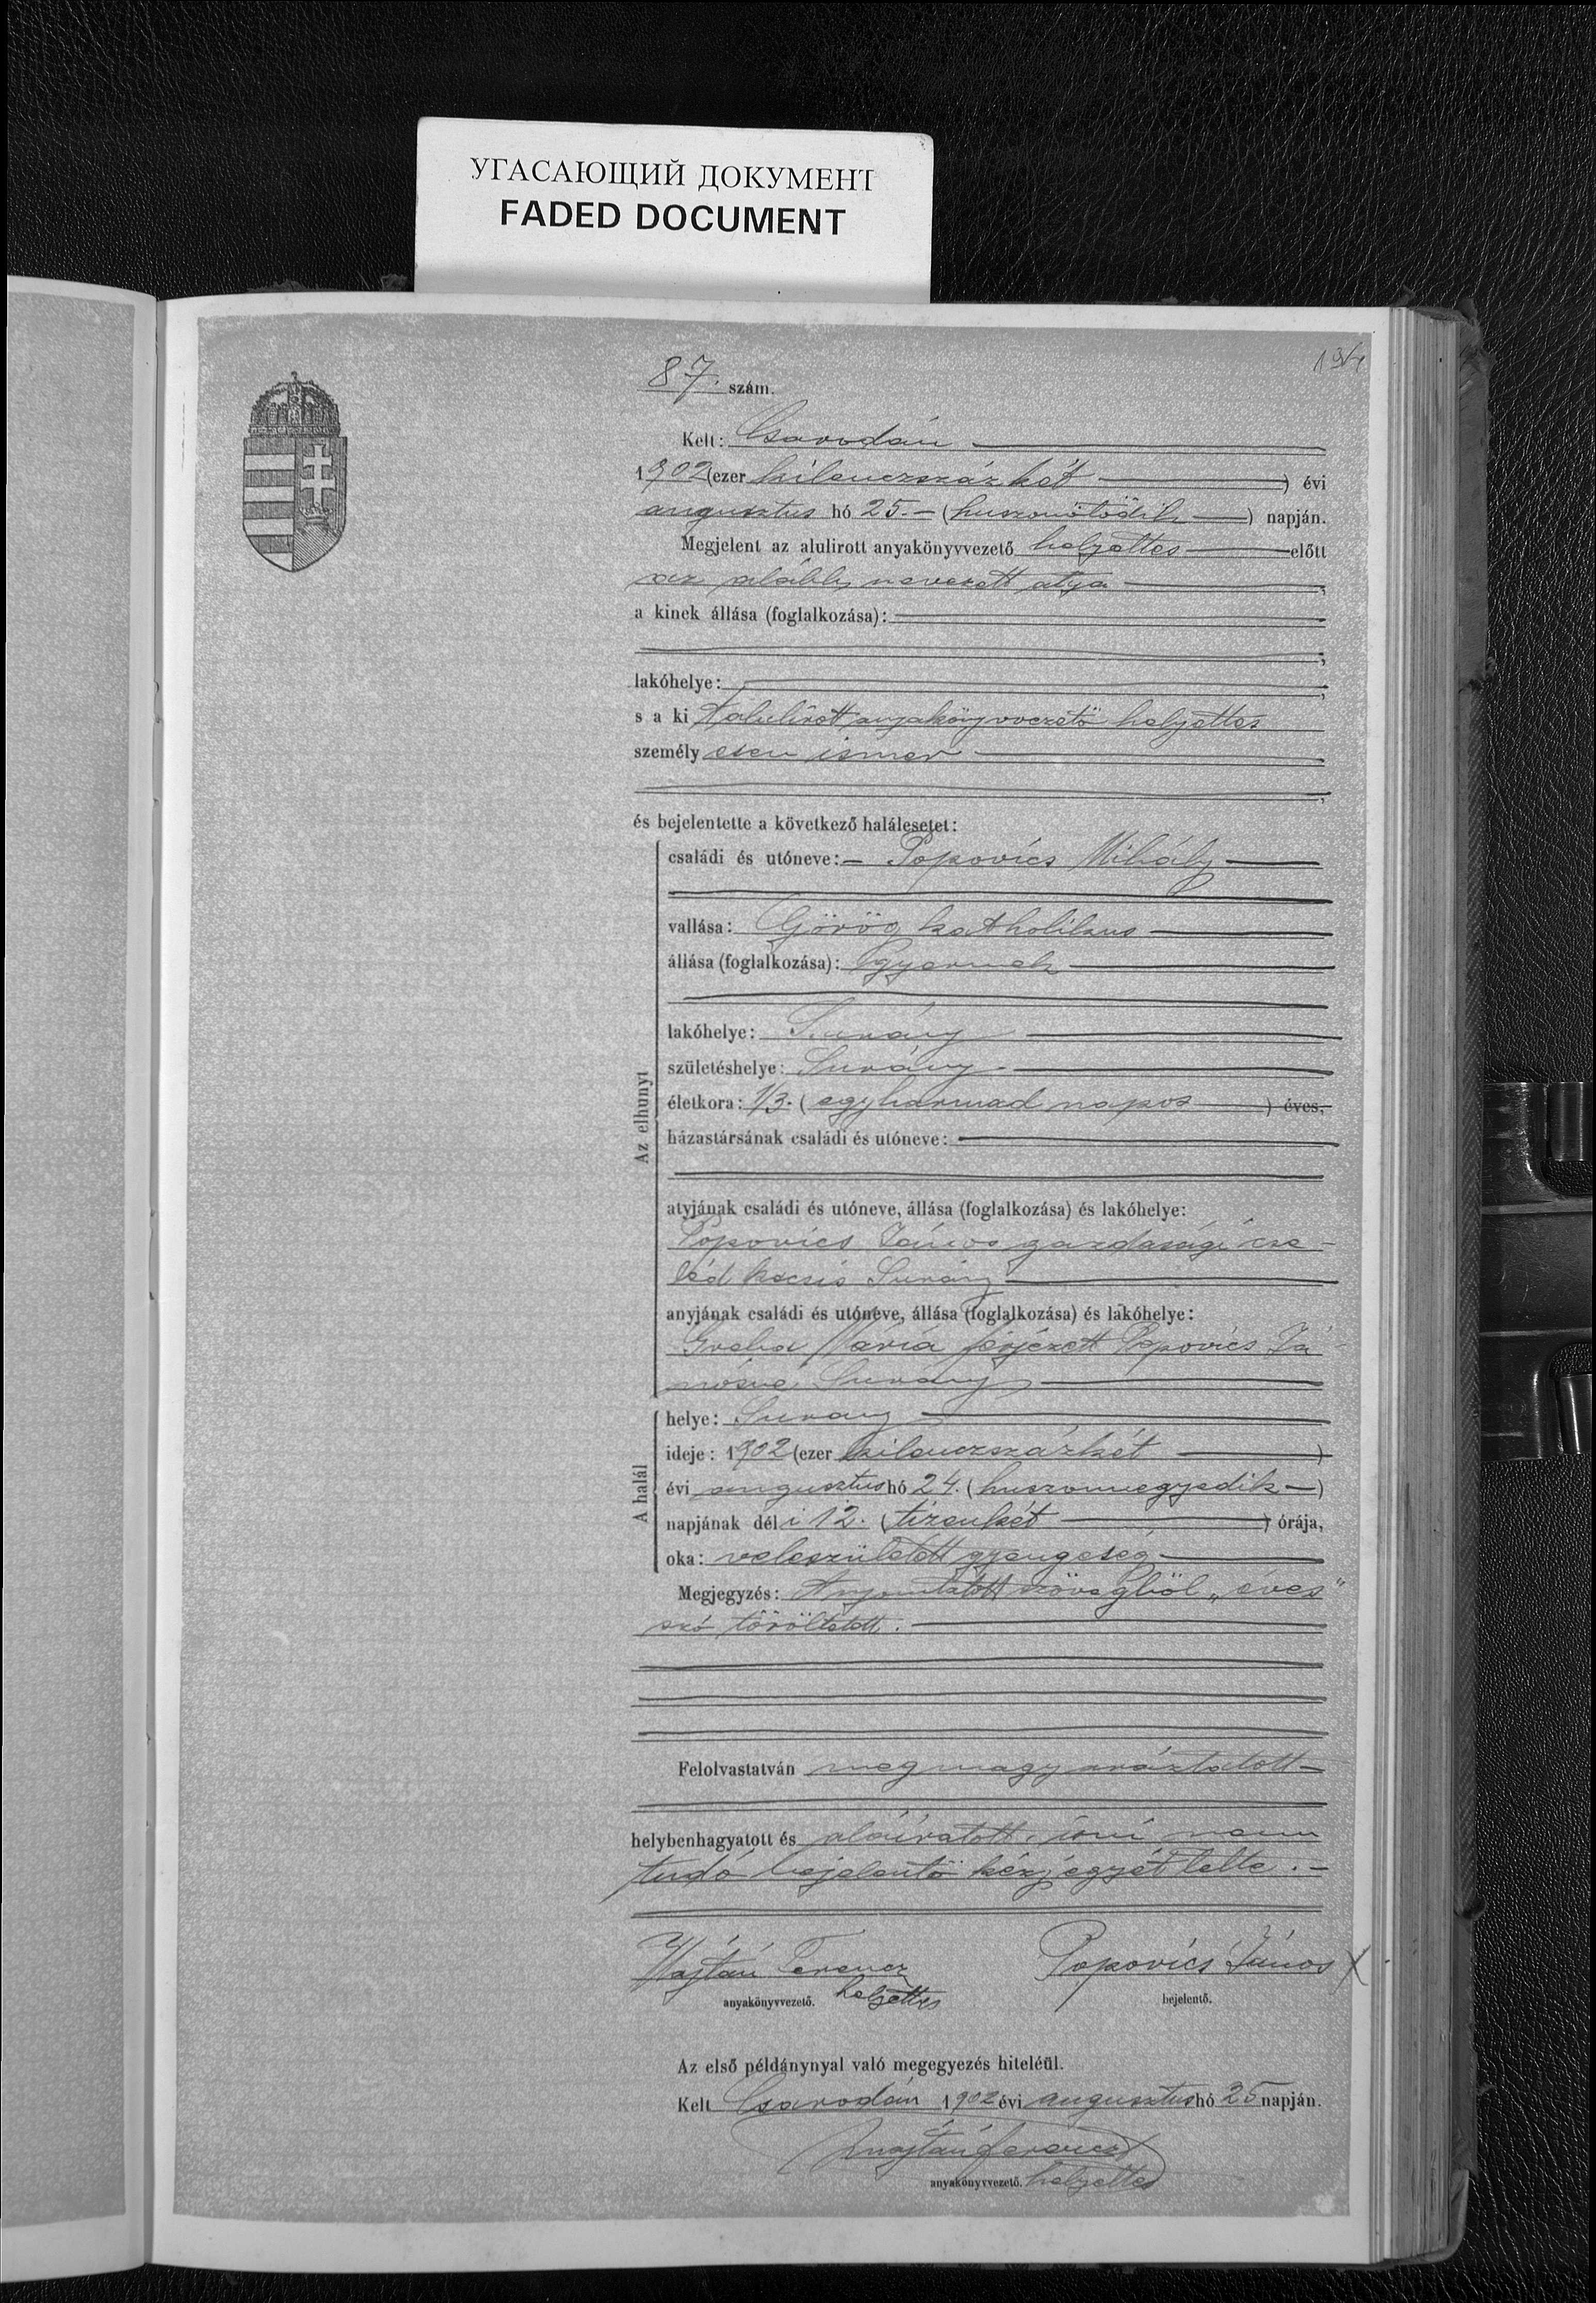 УГАСАЮЩИЙ ДОКУМЕНТ
FADED DOCUMENT
87. szám.
Kelt: Csarodán
1902 (ezer kilenczszáz két ) évi
augusztus hó 25. (huszonötödik ) napján.
Megjelent az alulirott anyakönyvvezető helyettes előtt
az alább nevezett atya ,
a kinek állása (foglalkozása):
lakóhelye:
s a ki t alulírott anyakönyvvezető helyettes
személy esen ismer
és bejelentette a következő halálesetet:
Az elhunyt
családi és utóneve: Popovics Mihály
vallása: Görög katholikus
állása (foglalkozása): gyermek
lakóhelye: Surány
születéshelye: Surány
életkora: 1/3. ( egyharmad napos ) éves,
házastársának családi és utóneve:
atyjának családi és utóneve, állása (foglalkozása) és lakóhelye:
Popovics János gazdasági cse-
léd kocsis Surány
anyjának családi és utóneve, állása (foglalkozása) és lakóhelye:
Mária férjezett Popovics Já-
nosné Surány
A halál
helye: Surány
ideje: 1902 (ezer kilenczszázkét )
évi augusztus hó 24. (huszonnegyedik )
napjának dél i 12. ( tizenkét ) órája,
oka: veleszületett gyengeség
Megjegyzés: A nyomtatott szövegből „éves"
szó töröltetett.
Felolvastatván megmagyaráztatott
helybenhagyatott és aláíratott, írni nem
tudó bejelentő kézjegyét tette.
Hajtán Ferencz Popovics János X
anyakönyvvezető. helyettes bejelentő.
Az első példánynyal való megegyezés hiteléül.
Kelt Csarodán 1902 évi augusztus hó 25 napján.
Ferencz
anyakönyvvezető. helyettes